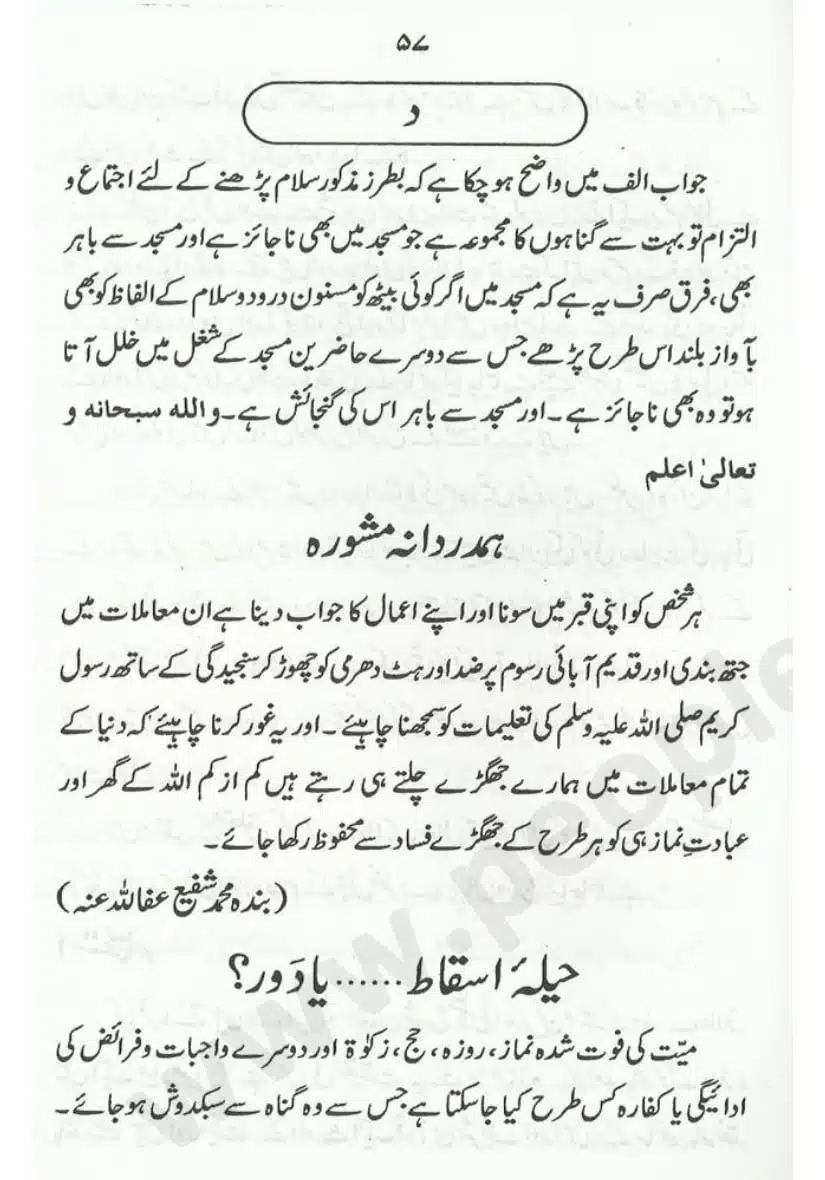 ۵۷
د
جواب الف میں واضح ہو چکا ہے کہ بطرز مذکور سلام پڑھنے کے لئے اجتماع و
التزام تو بہت سے گناہوں کا مجموعہ ہے جو مسجد میں بھی ناجائز ہے اور مسجد سے باہر
بھی، فرق صرف یہ ہے کہ مسجد میں اگر کوئی بیٹھ کو مسنون درود و سلام کے الفاظ کو بھی
بآواز بلند اس طرح پڑھے جس سے دوسرے حاضرین مسجد کے شغل میں خلل آتا
ہو تو وہ بھی ناجائز ہے۔ اور مسجد سے باہر اس کی گنجائش ہے۔ والله سبحانه و
تعالىٰ اعلم
ہمدردانہ مشورہ
ہر شخص کو اپنی قبر میں سونا اور اپنے اعمال کا جواب دینا ہے ان معاملات میں
جتھ بندی اور قدیم آبائی رسوم پر ضد اور ہٹ دھرمی کو چھوڑ کر سنجیدگی کے ساتھ رسول
کریم صلی اللہ علیہ وسلم کی تعلیمات کو سمجھنا چاہیئے۔ اور یہ غور کرنا چاہیئے کہ دنیا کے
تمام معاملات میں ہمارے جھگڑے چلتے ہی رہتے ہیں کم از کم اللہ کے گھر اور
عبادتِ نماز ہی کو ہر طرح کے جھگڑے فساد سے محفوظ رکھا جائے۔
(بندہ محمد شفیع عفا اللہ عنہ)
حیلۂ اسقاط......یا دَور؟
میّت کی فوت شدہ نماز، روزہ، حج، زکوٰۃ اور دوسرے واجبات و فرائض کی
ادائیگی یا کفارہ کس طرح کیا جا سکتا ہے جس سے وہ گناہ سے سبکدوش ہو جائے۔
www.people